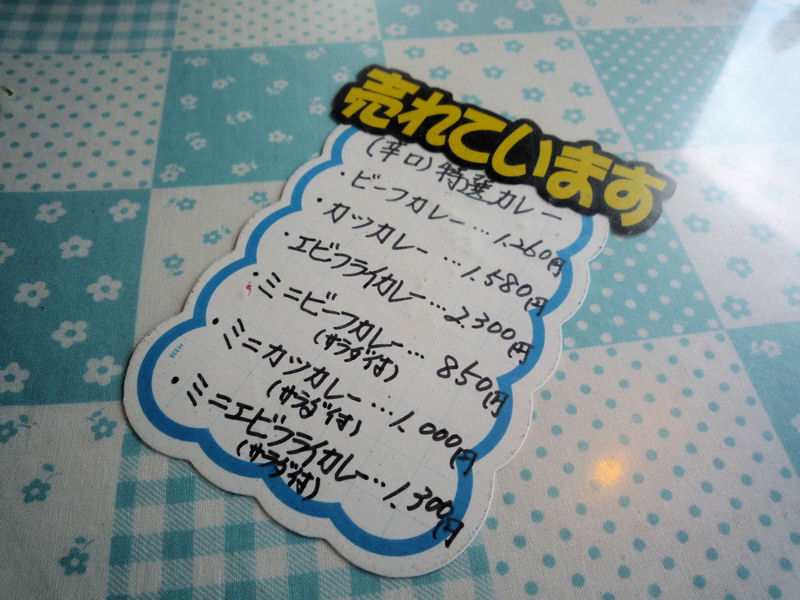 売れています
(辛口)特選カレー
・ビーフカレー…1.260円
・カツカレー…1.580円
・エビフライカレー…2.300円
・ミニビーフカレー…850円
(サラダ付)
・ミニカツカレー…1.000円
(サラダ付)
・ミニエビフライカレー…1.300円
(サラダ付)